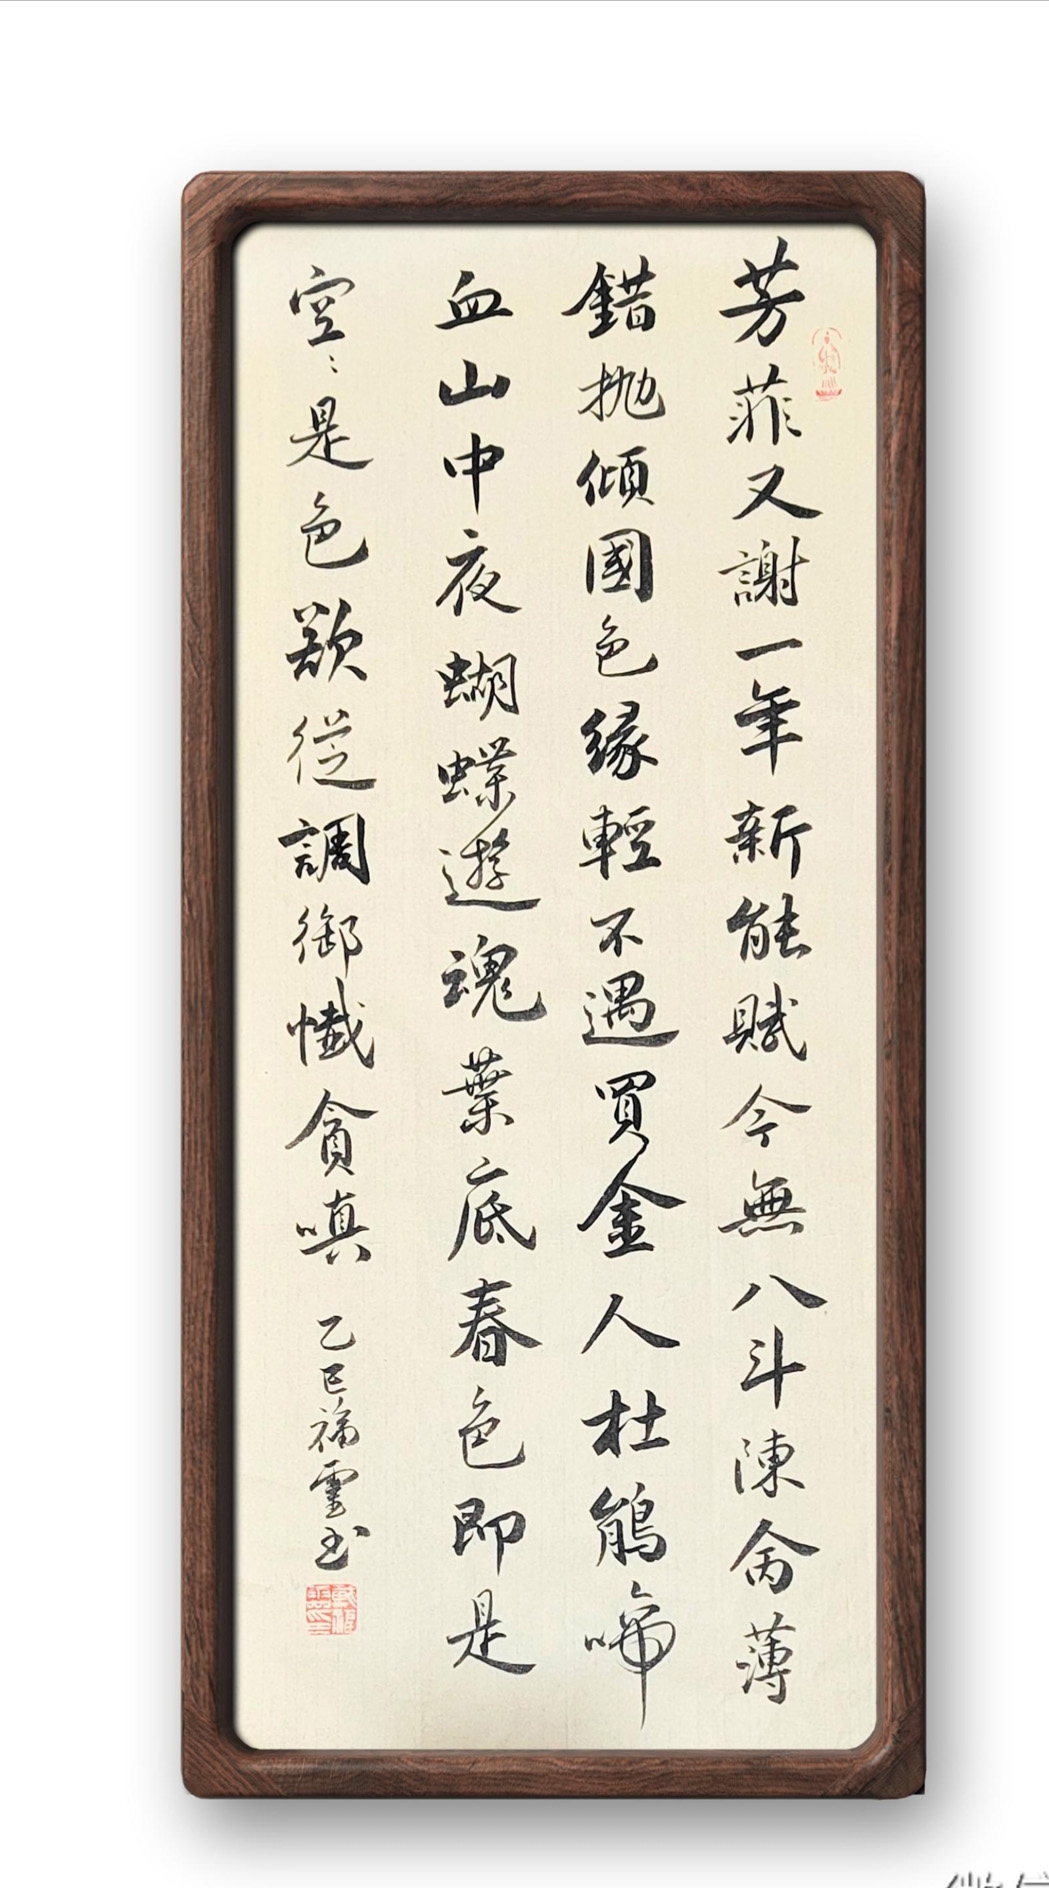 芳菲又謝一年新能賦今無八斗陳命薄
錯拋傾國色緣輕不遇買金人杜鵑啼
血山中夜蝴蝶遊魂葉底春色即是
空〻是色欲從調御懺貪嗔
乙巳福靈书